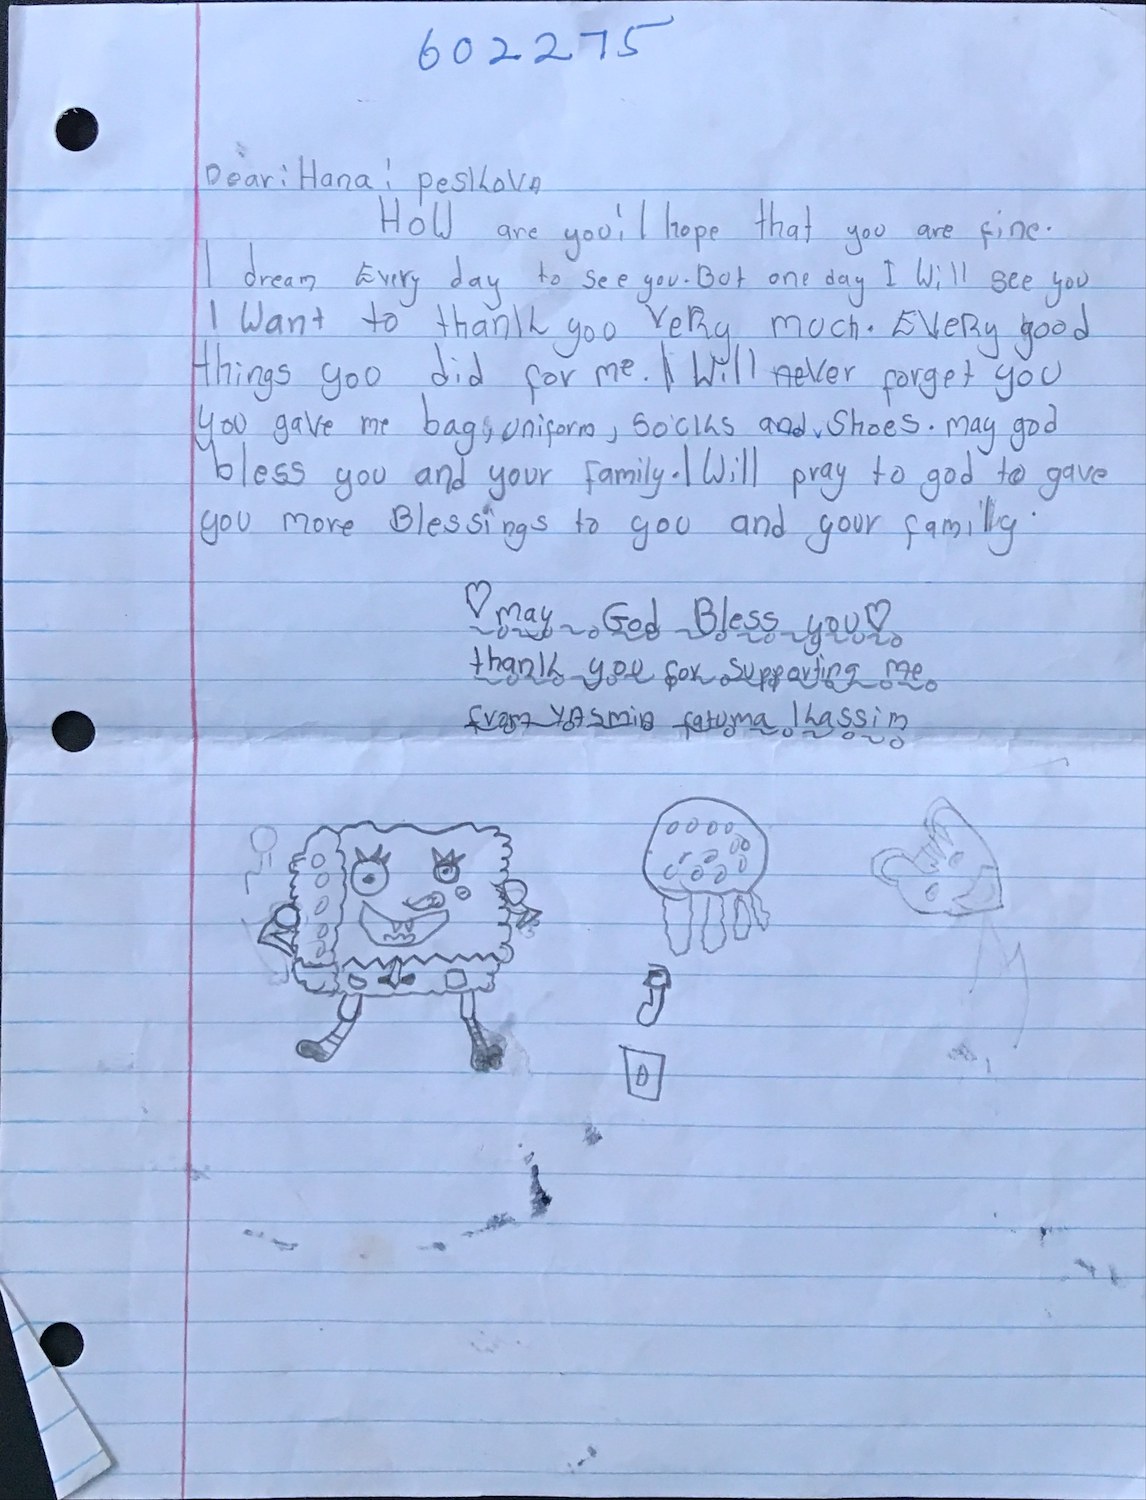 602275
Dear: Hana: peskova
How are you: I hope that you are fine.
I dream Every day to see you. But one day I Will see you
I Want to thank you VeRy much. EVeRy good
things you did for me. I Will never forget you
You gave me bag, uniform, socks and, Shoes. may god
bless you and your family. I Will pray to god to gave
you more Blessings to you and your family.
♡ may God Bless you ♡
thank you for supporting me
from YAsmin fatuma khassim
D